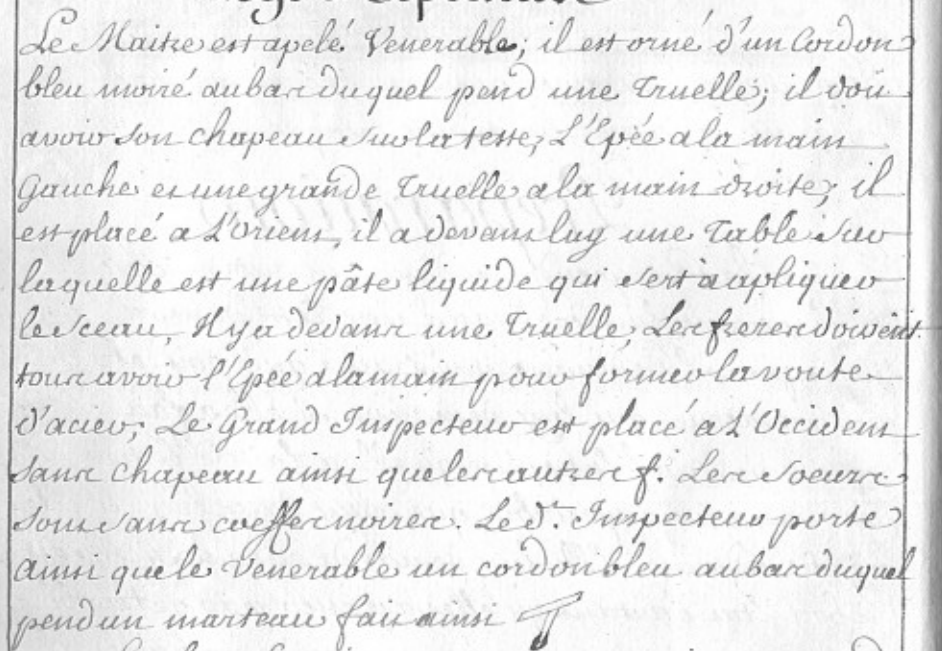 Le Maitre est apelé Venerable; il est orné d'un Cordon
bleu moiré aubas duquel pend une Truelle; il doit
avoir son chapeau sur la teste, L'Epée a la main
Gauche et une grande Truelle a la main droite; il
est placé a L'orient, il a devant luy une Table sur
laquelle est une pâte liquide qui sert à apliquer
le sceau, Il y a devant une Truelle, Les freres doivent
tous avoir l'Epée a la main pour former la voute
d'acier; Le Grand Inspecteur est placé a L'Occident
sans chapeau ainsi que les autres f. Les soeurs
sont sans coeffes noires. Le d.t Inspecteur porte
ainsi que le Venerable un cordon bleu au bas duquel
pend un marteau fait ainsi